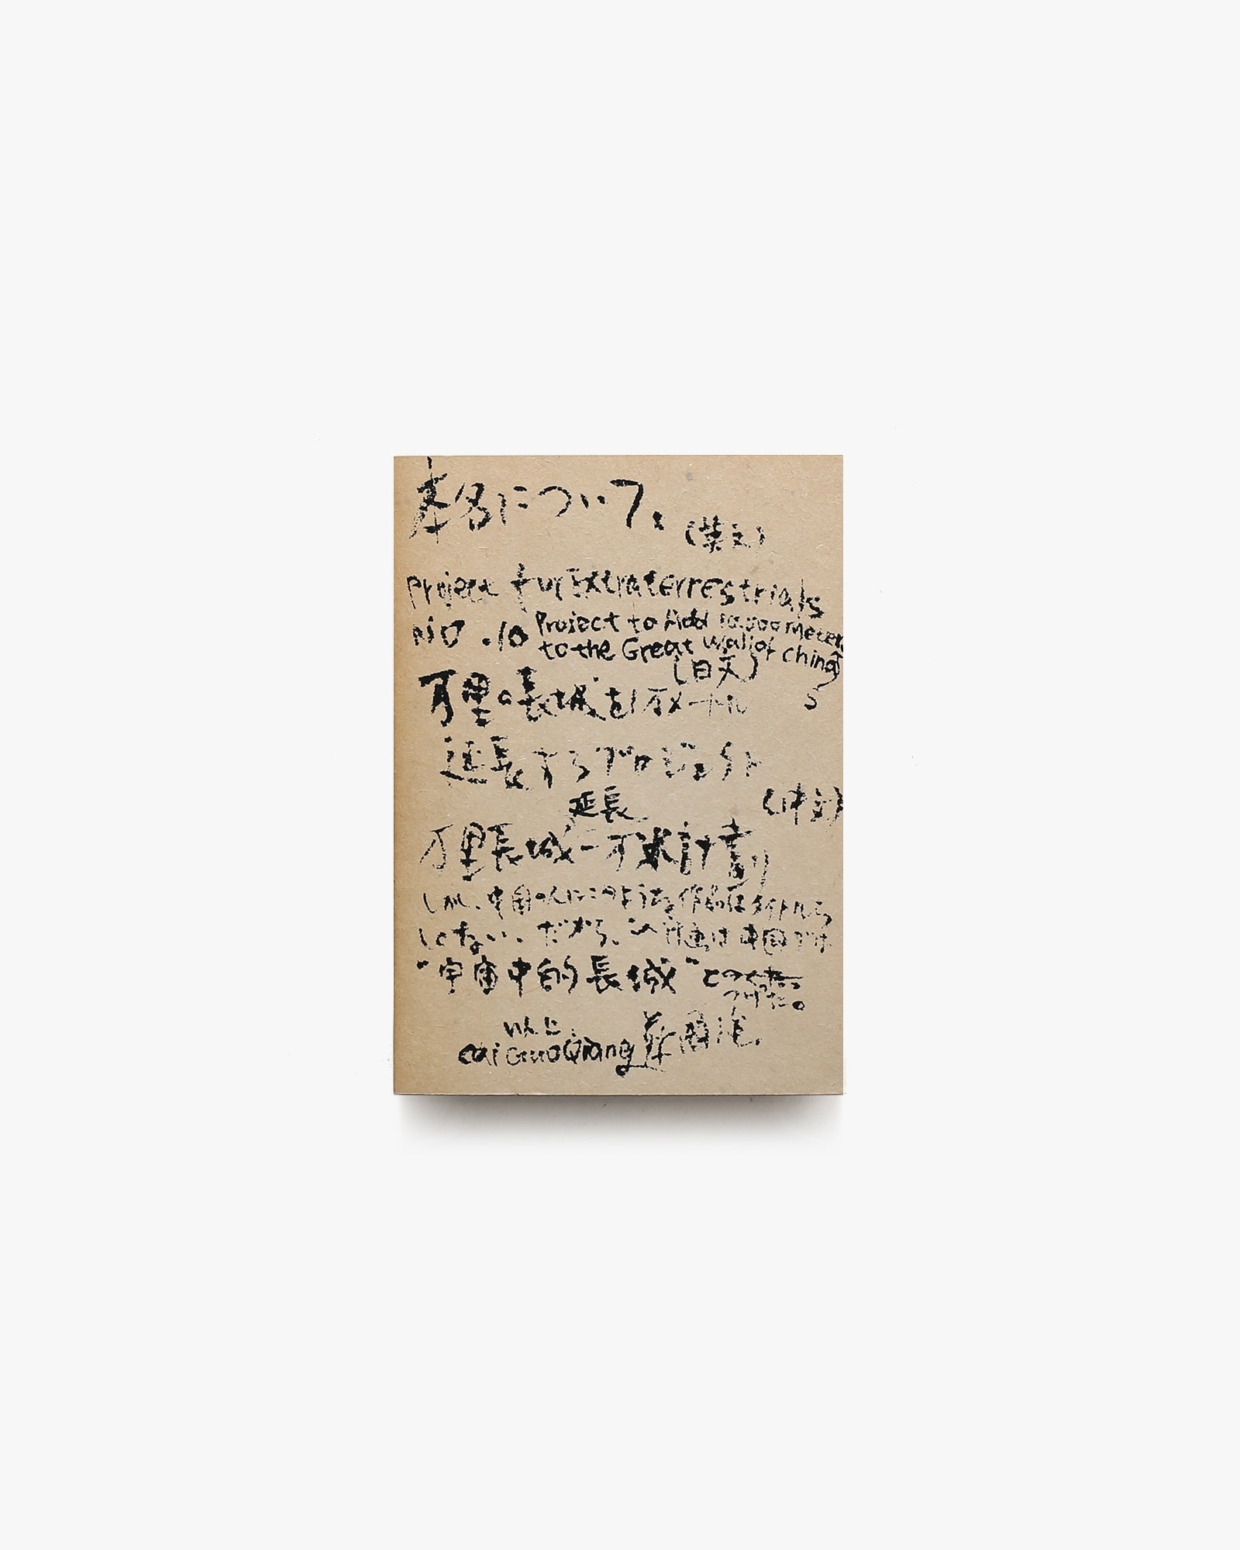 本名について。
(英文)
Project fur Extraterrestrials
NO.10 Project to Add 10.000 Meters
to the Great Wall of China
(日文)
万里の長城を1万メートル
延長するプロジェクト
(中文)
延長
万里長城一万米計劃
しかし、中国の人にこのような作品はタイトルに
しない、だから、この計画は中国では
"宇宙中的長城"と
つけた。
Cai Guo Qiang 蔡國強